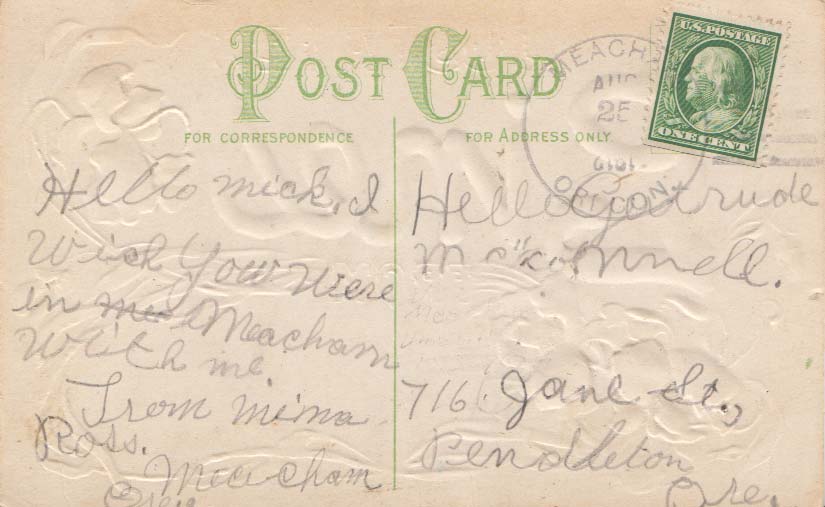 POST CARD
FOR CORRESPONDENCE
FOR ADDRESS ONLY
U.S. POSTAGE
ONE CENT
MEACH
AUG
25
OREGON
Hello mick, I
Wish You Were
in me Meacham
With me
From mima
Ross.
Meacham
Ore.
Hello Gertrude
McKonnell.
716 Jane St.,
Pendleton
Ore.